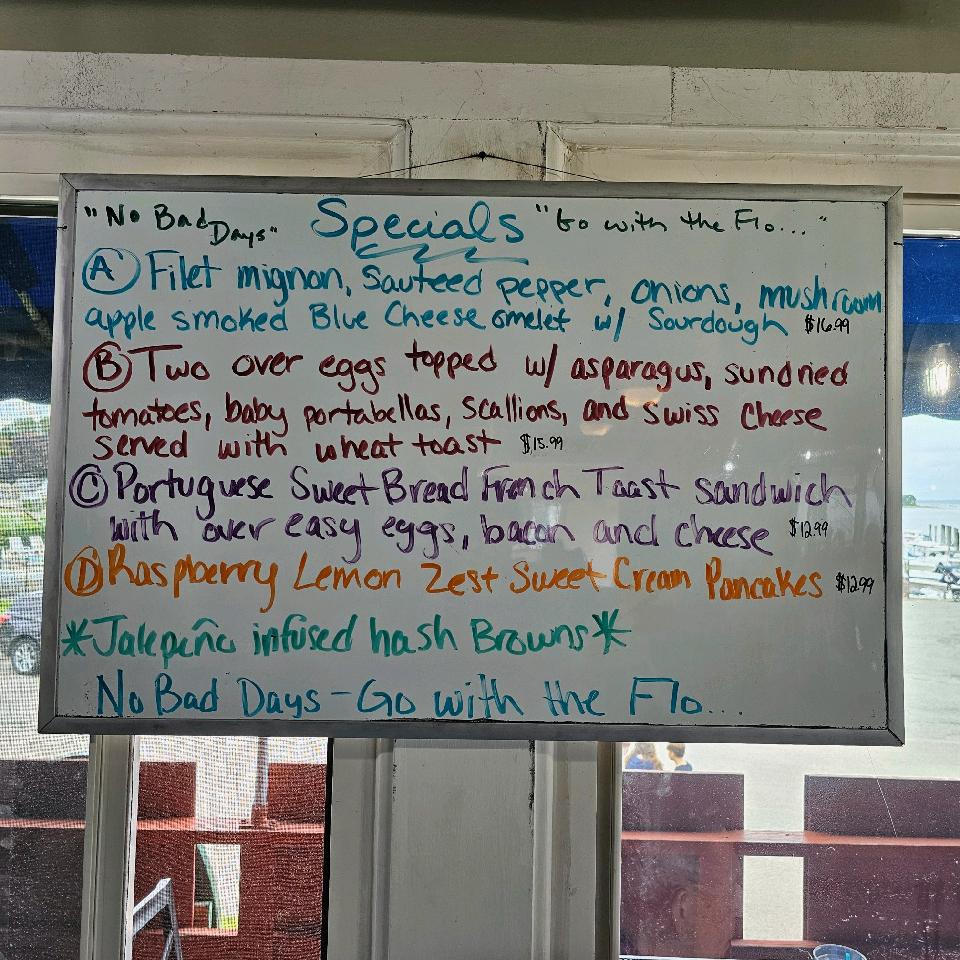 "No Bad Days" Specials "Go with the Flo..."
A Filet mignon, Sauteed pepper, onions, mushroom
apple smoked Blue Cheese omelet w/ Sourdough $16.99
B Two over eggs topped w/ asparagus, sundried
tomatoes, baby portabellas, scallions, and swiss cheese
served with wheat toast $15.99
C Portuguese Sweet Bread French Toast sandwich
with over easy eggs, bacon and cheese $12.99
D Raspberry Lemon Zest Sweet Cream Pancakes $12.99
*Jalepeño infused hash Browns*
No Bad Days - Go with the Flo...